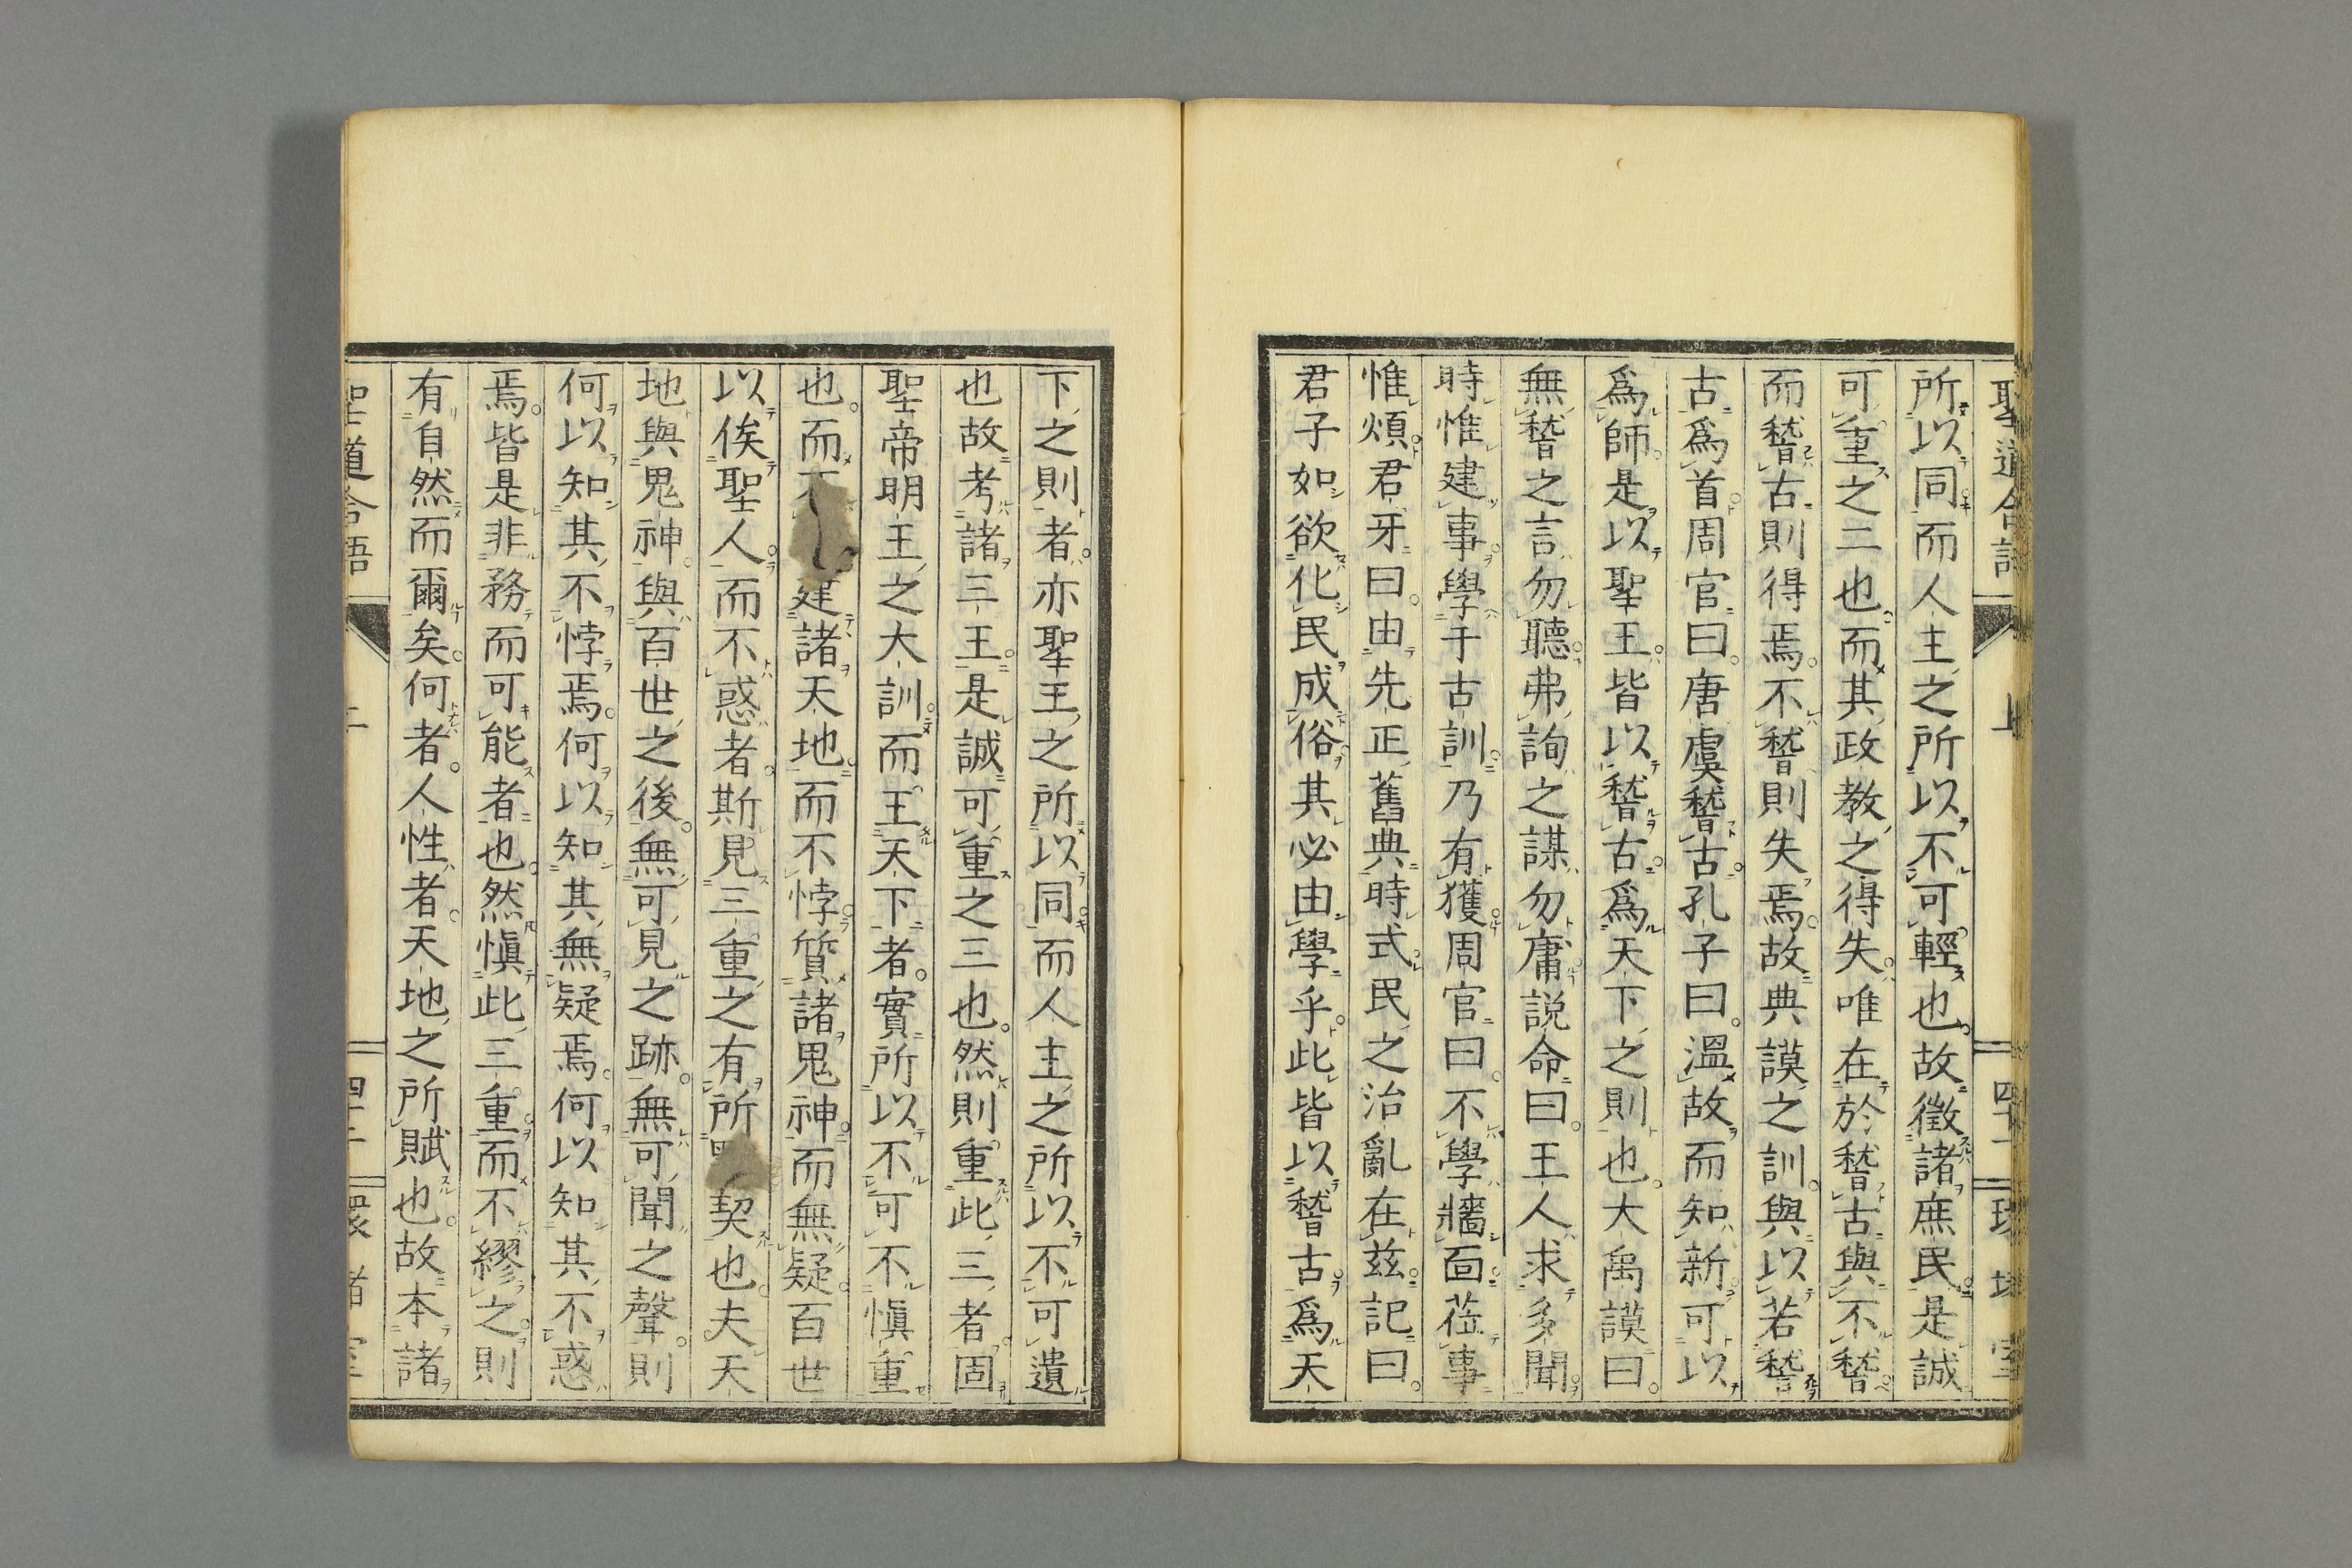 聖道合語 上 四十一 環堵室
所以同而人主之所以不可輕也故徵諸庶民是誠
可重之二也而其政教之得失唯在於稽古與不稽
而稽古則得焉不稽則失焉故典謨之訓與以若稽
古爲首周官曰唐虞稽古孔子曰溫故而知新可以
爲師是以聖王皆以稽古爲天下之則也大禹謨曰
無稽之言勿聽弗詢之謀勿庸説命曰王人求多聞
時惟建事學于古訓乃有獲周官曰不學牆面莅事
惟煩君牙曰由先正舊典時式民之治亂在茲記曰
君子如欲化民成俗其必由學乎此皆以稽古爲天
下之則者亦聖王之所以同而人主之所以不可遺
也故考諸三王是誠可重之三也然則重此三者固
聖帝明王之大訓而王天下者實所以不可不愼重
也而不建諸天地而不悖質諸鬼神而無疑百世
以俟聖人而不惑者斯見三重之有所契也夫天
地與鬼神與百世之後無可見之跡無可聞之聲則
何以知其不悖焉何以知其無疑焉何以知其不惑
焉皆是非務而可能者也然愼此三重而不繆之則
有自然而爾矣何者人性者天地之所賦也故本諸
聖道合語 上 四十二 環堵室